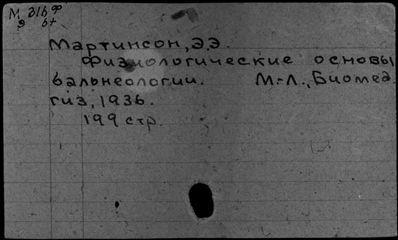 М 316 Ф
Э 6+
Мартинсон, Э.Э.
Физиологические основы
бальнеологии. М.-Л., Биомед.
гиз, 1936.
199 стр.